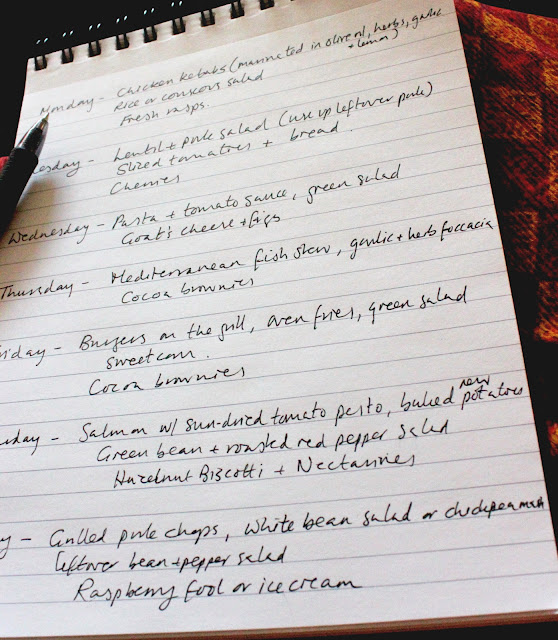 Monday - Chicken kebabs (marinated in olive oil, herbs, garlic
+ lemon)
Rice or couscous salad
Fresh rasps.
esday - Lentil + pork salad (use up leftover pork)
Sliced tomatoes + bread.
Cherries
Wednesday - Pasta + tomato sauce, green salad
Goat's cheese + figs
Thursday - Mediterranean fish stew, garlic + herb foccacia
Cocoa brownies
riday - Burgers on the grill, oven fries, green salad
sweetcorn.
Cocoa brownies
urday - Salmon w/ sun-dried tomato pesto, baked new potatoes
Green bean + roasted red pepper salad
Hazelnut Biscotti + Nectarines
y - Grilled pork chops, white bean salad or chickpea mash
leftover bean + pepper salad
Raspberry fool or ice cream